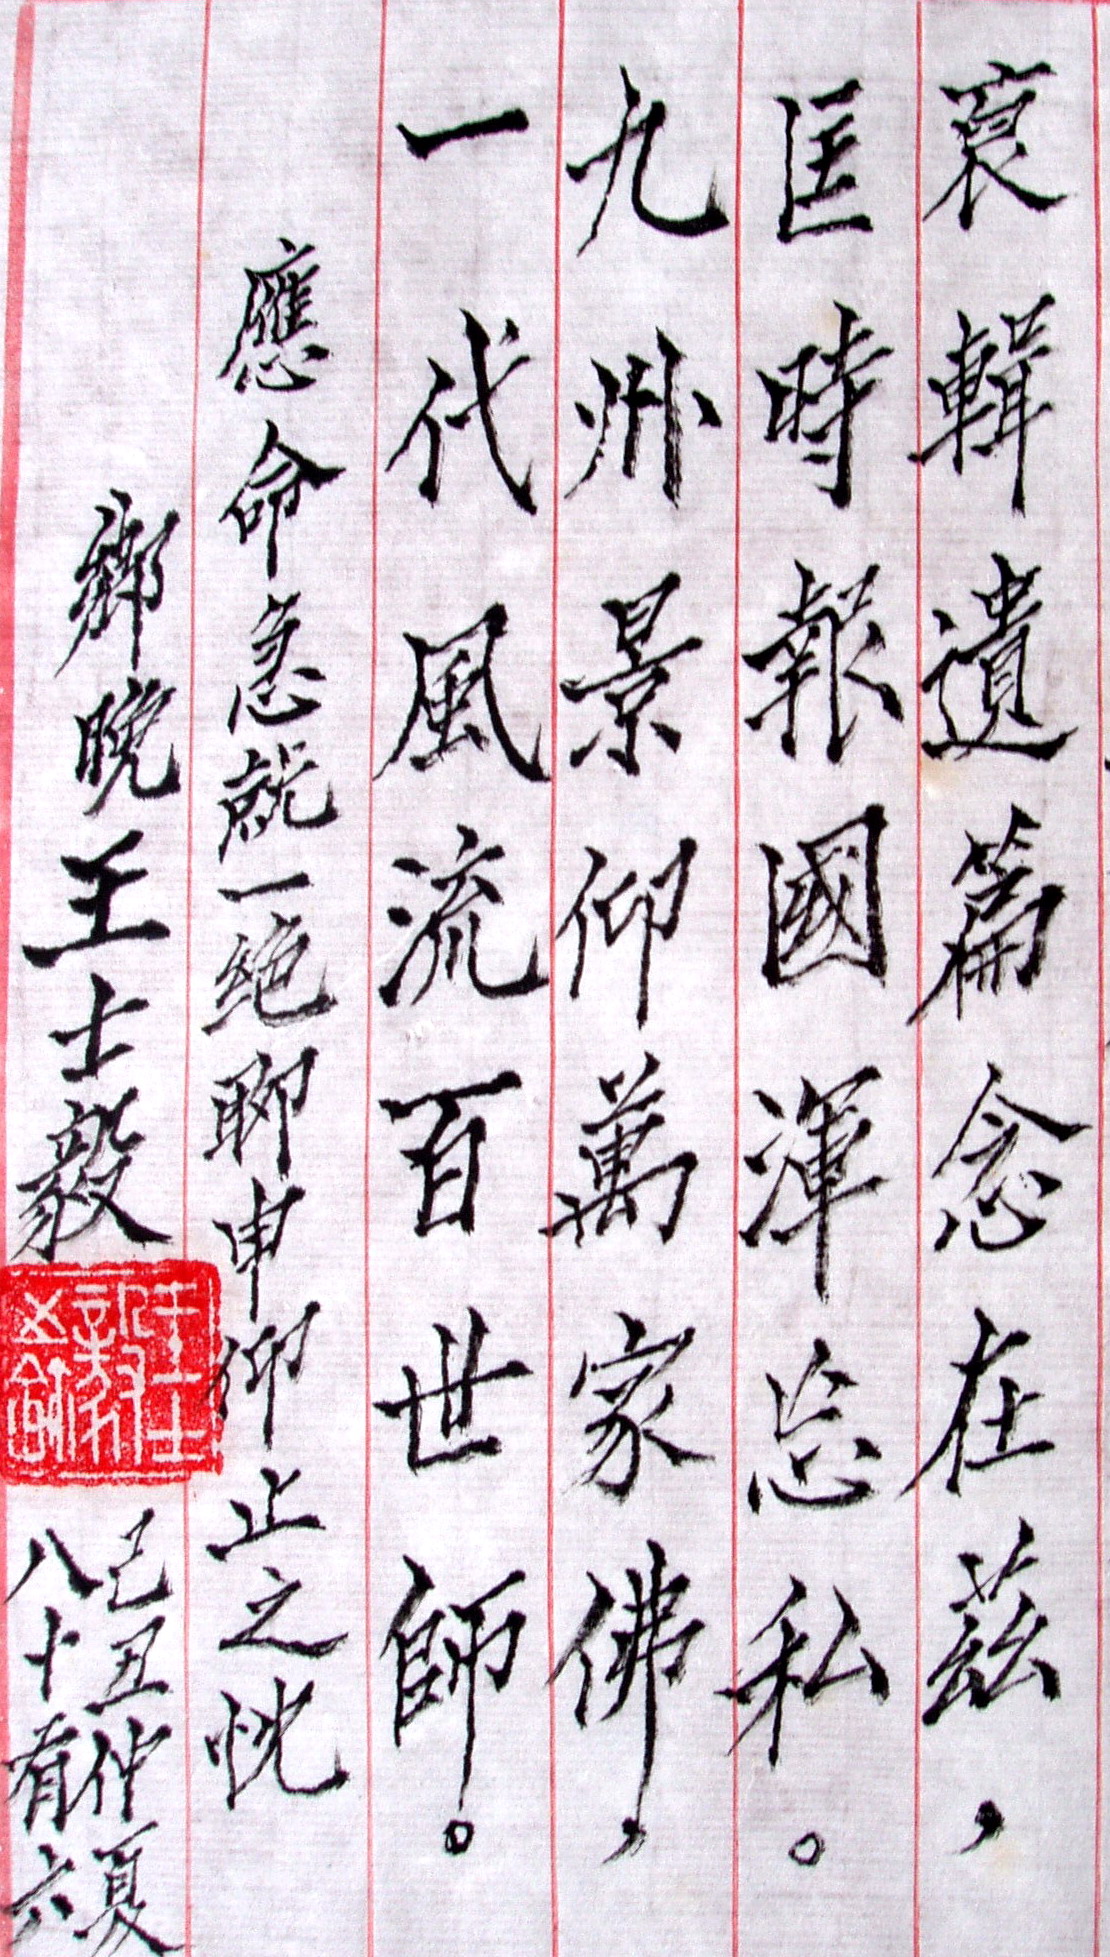 裒輯遺篇念在茲，
匡時報國渾忘私。
九州景仰萬家佛，
一代風流百世師。
應命急就一绝聊申仰止之忱
鄉晚王士毅
己丑仲夏
八十有六